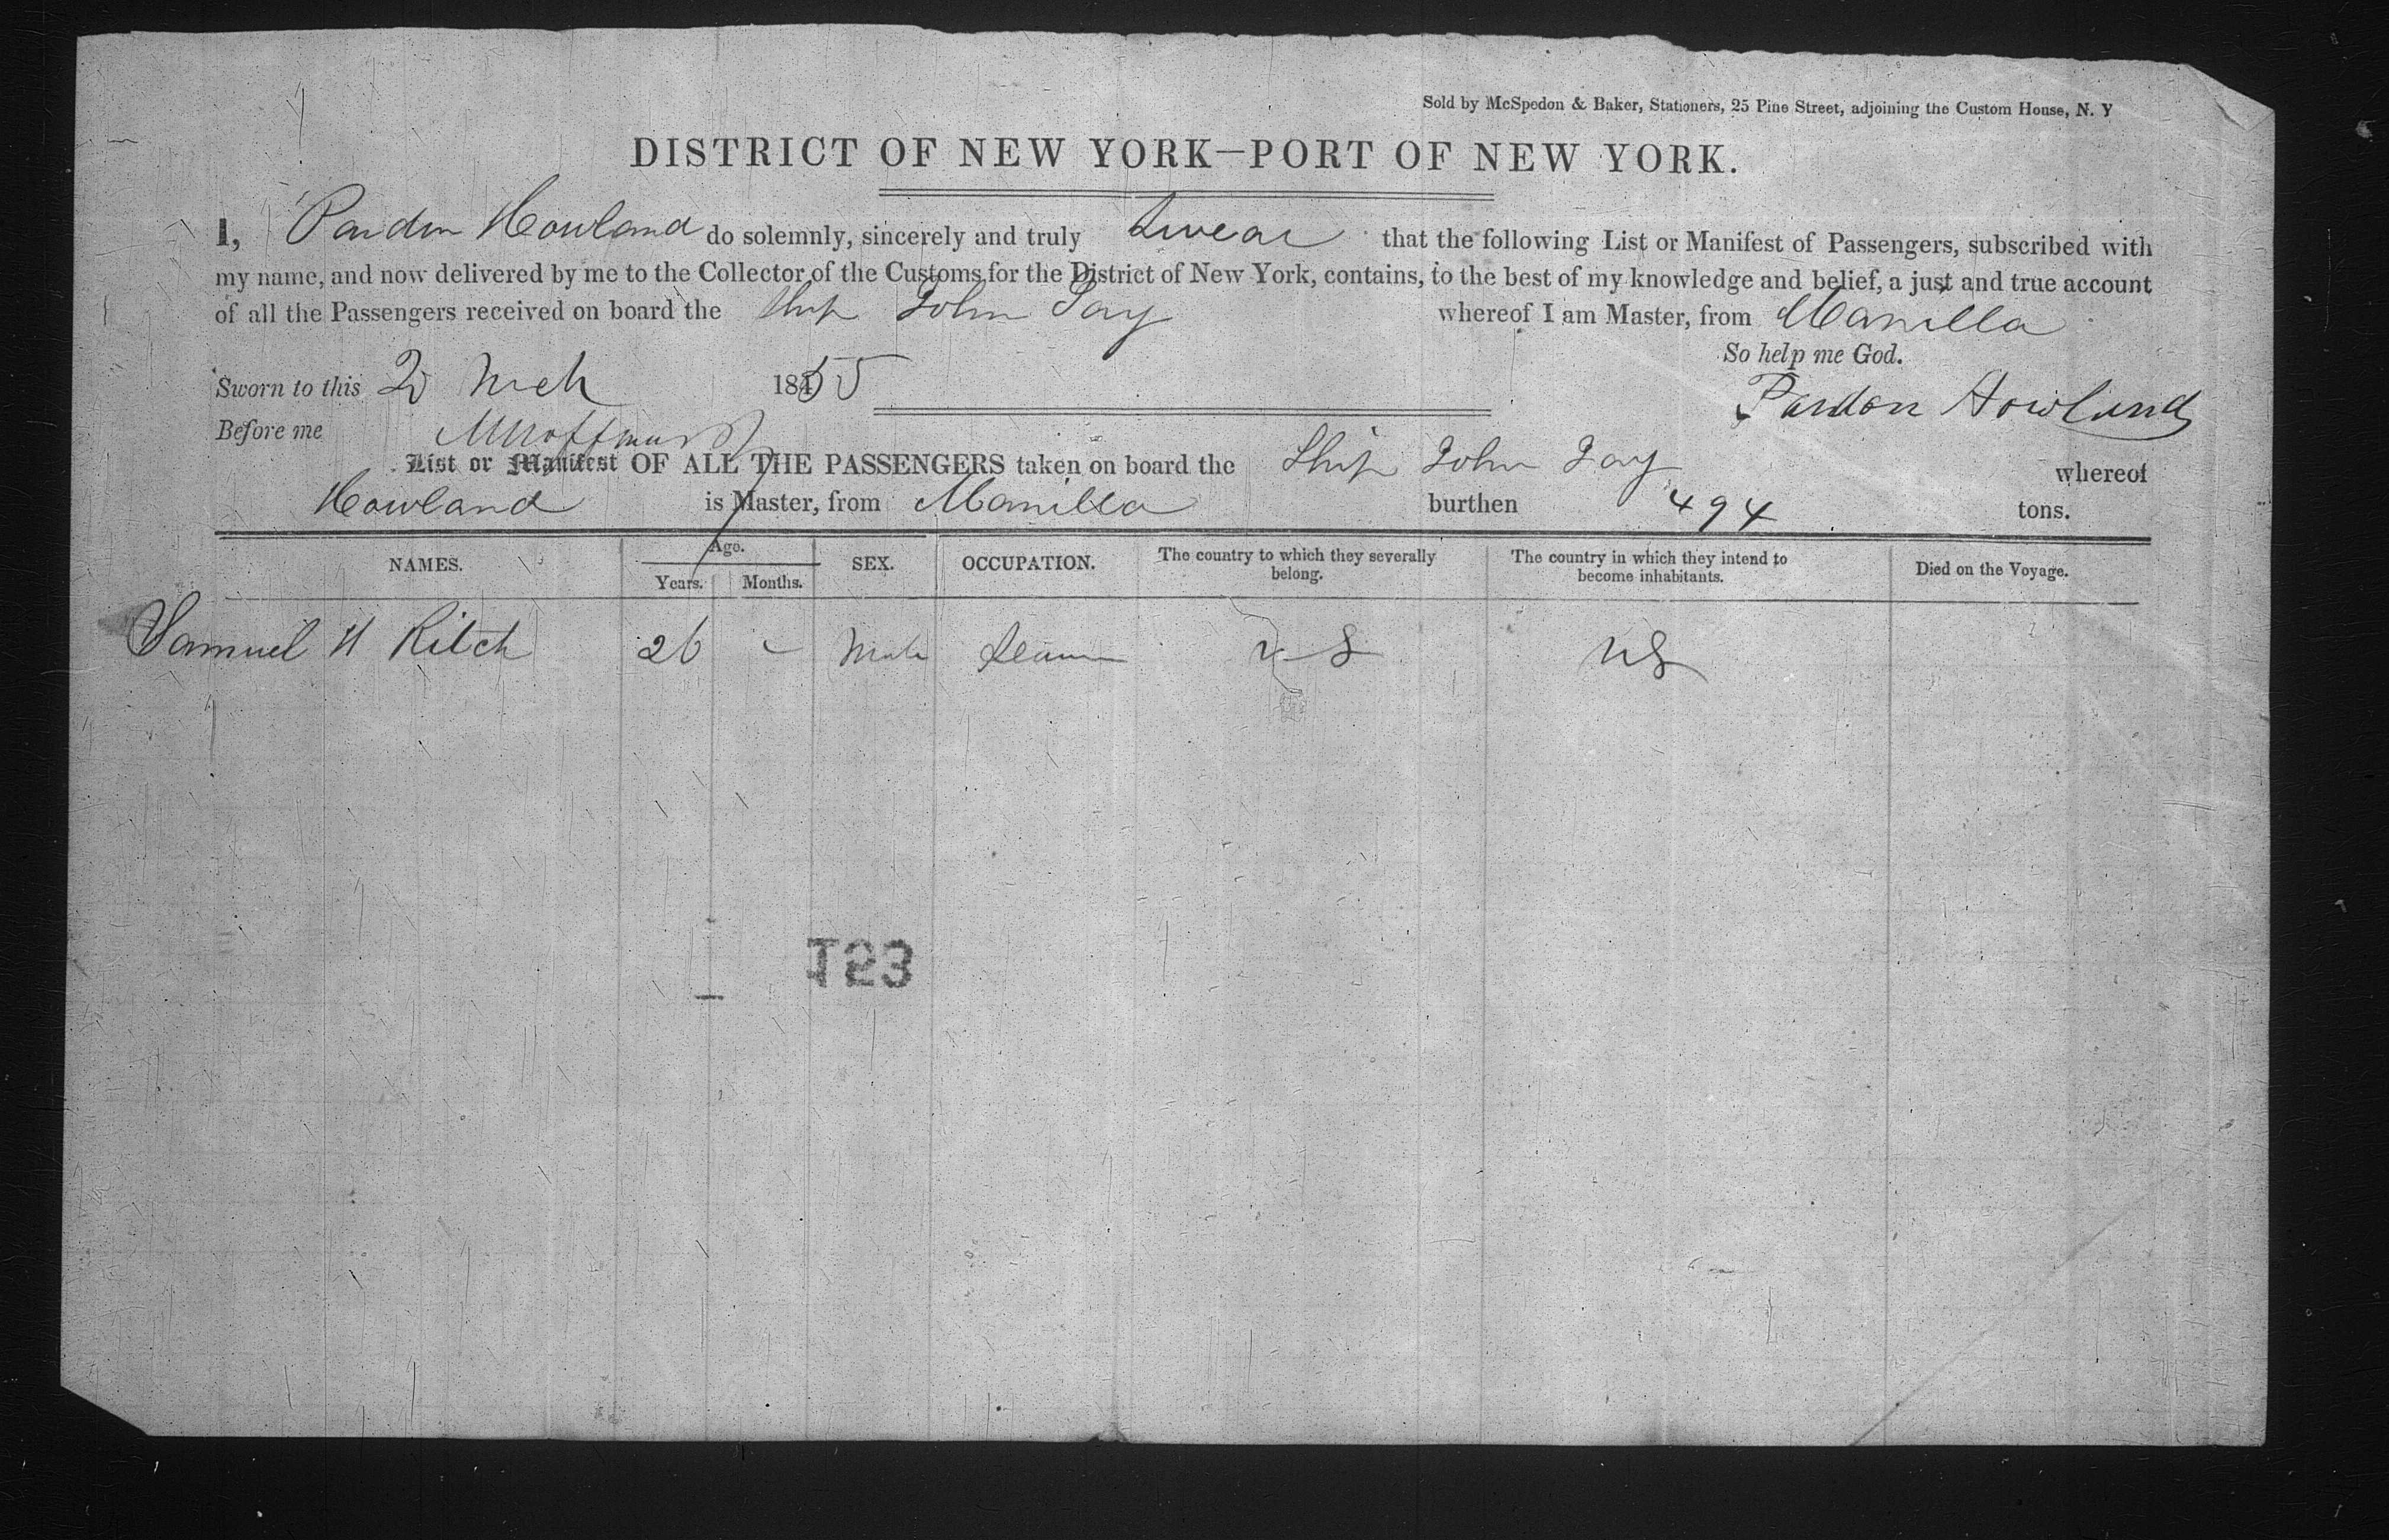 Sold by McSpedon & Baker, Stationers, 25 Pine Street, adjoining the Custom House, N. Y
DISTRICT OF NEW YORK—PORT OF NEW YORK.
I, Pardon Howland do solemnly, sincerely and truly swear that the following List or Manifest of Passengers, subscribed with
my name, and now delivered by me to the Collector of the Customs for the District of New York, contains, to the best of my knowledge and belief, a just and true account
of all the Passengers received on board the Ship John Jay whereof I am Master, from Manilla
So help me God.
Sworn to this 2 Mch 1855
Pardon Howland
Before me
List or Manifest OF ALL THE PASSENGERS taken on board the Ship John Jay whereof
Howland is Master, from Manilla burthen 494 tons.
NAMES. Age. Years. Months. SEX. OCCUPATION. The country to which they severally belong. The country in which they intend to become inhabitants. Died on the Voyage.
Samuel H Ritch 26 - Male Seaman U S U S
123